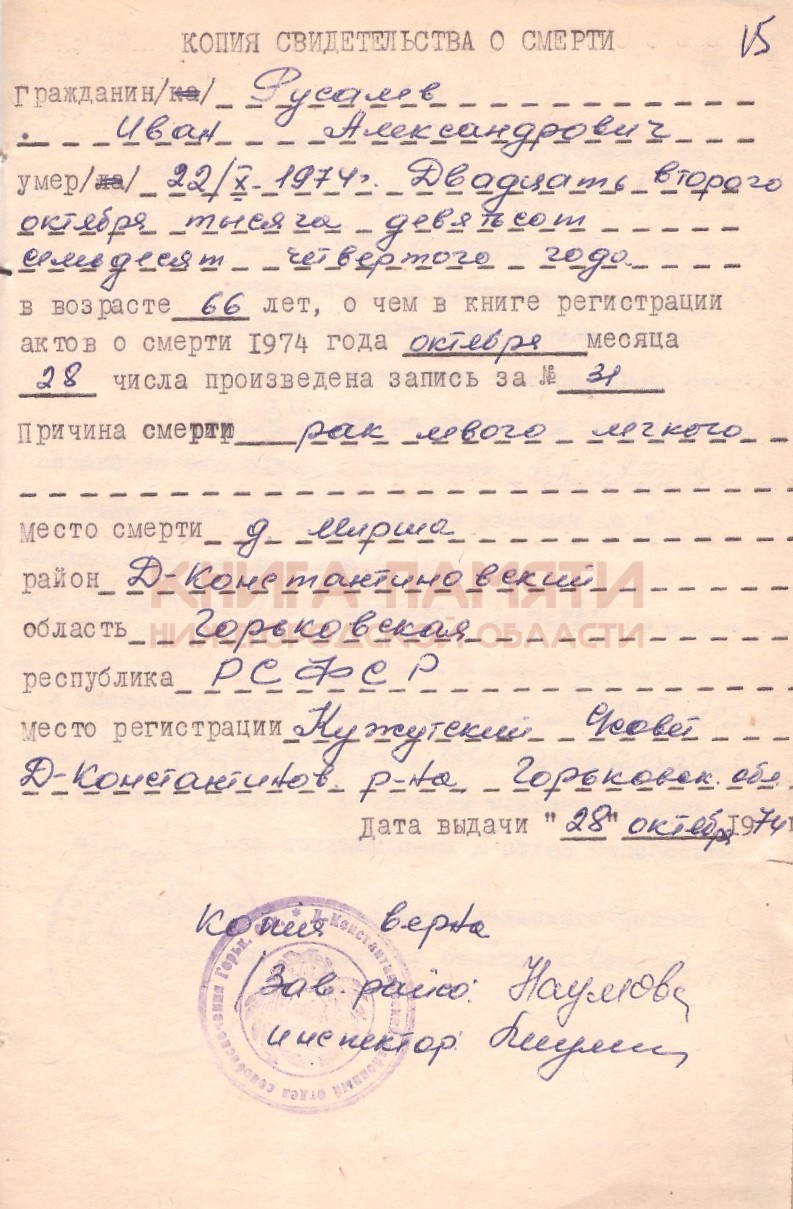 15
КОПИЯ СВИДЕТЕЛЬСТВА О СМЕРТИ
Гражданин/ка/ Русалев
Иван Александрович
умер/ла/ 22/X-1974г. Двадцать второго
октября тысяча девятьсот
семьдесят четвертого года
в возрасте 66 лет, о чем в книге регистрации
актов о смерти 1974 года октября месяца
28 числа произведена запись за № 31
Причина смерти рак левого легкого
место смерти д. Мирша
район Д-Константиновский
КНИГА ПАМЯТИ
область Горьковская
НИЖЕГОРОДСКОЙ ОБЛАСТИ
республика РСФСР
место регистрации Кужутский
Д-Константинов. р-на Горьковск. обл.
Дата выдачи "28" октября 1974г
Копия верна
Зав. райсо: Наумова
инспектор: